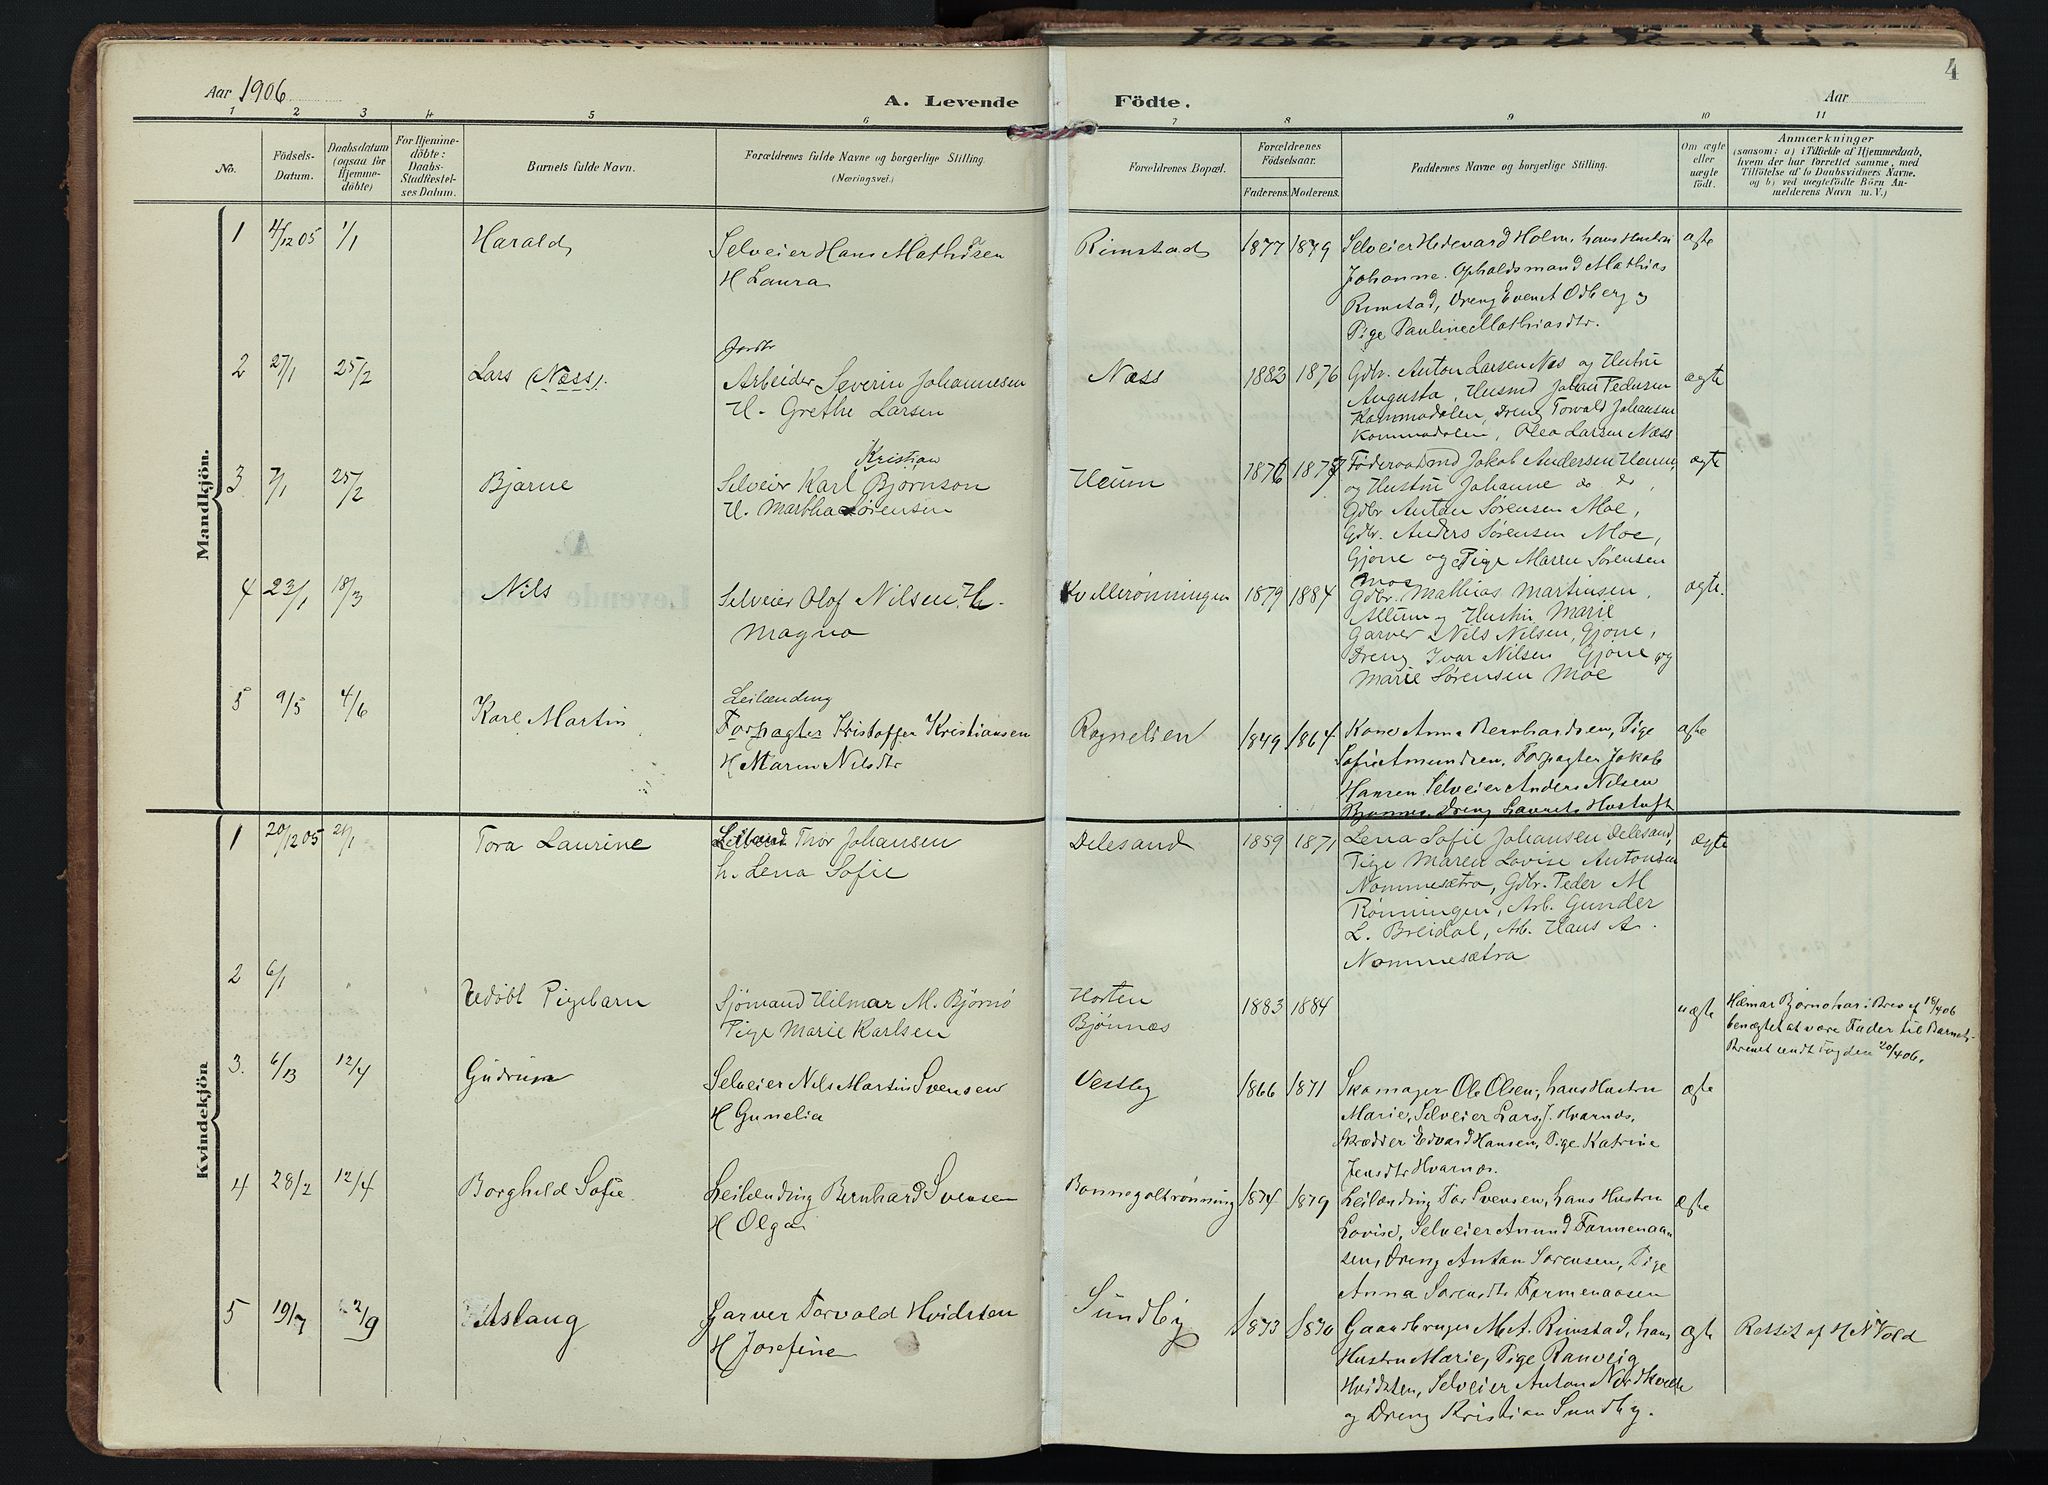 4
Aar 1906
A. Levende Födte.
Aar
1 2 3 4 5 6 7 8 9 10 11
No.
Födsels-Datum.
Daabsdatum (ogsaa for Hjemmedöbte)
For Hjemmedöbte: Daabs-Stadfæstelses Datum.
Barnets fulde Navn.
Forældrenes fulde Navne og borgerlige Stilling.
(Næringsvei.)
Forældrenes Bopæl.
Forældrenes Födselsaar.
Faderens. Moderens.
Faddernes Navne og borgerlige Stilling.
Om ægte eller uægte födt.
Anmærkninger
(saasom: a) i Tilfælde af Hjemmedaab, hvem der har forrettet samme, med Tilföielse af to Daabsvidners Navne. og b) ved uægtefödte Börn Anmelderens Navn m. V.)
Mandkjön.
1 4/12 05 1/1 Harald
Selveier Hans Mathisen
H Laura
Rimstad 1877 1879
Selveier Hedevard Holm, hans Hustru
Johanne. Opholdsmand Mathias
Rimstad, Dreng Evenst Odberg og
Pige Pauline Mathiasdtr.
ægte
2 27/1 25/2 Lars (Næss).
Arbeider Severin Johannesen
H. Grethe Larsen
Næss 1883 1876
Gdbr. Anton Larsen Næs og Hustru
Augusta, Husmd Johan Pedersen
Kommodalen, Dreng Torvald Johansen
Kommodalen, Olea Larsen Næss
ægte
3. 7/1 25/2 Bjarne
Kristian
Selveier Karl Bjornson
H. Martha Sørensen
Heum 1876 1877
Føderaadsmd Jakob Andersen Heum,
og Hustru Johanne do do,
Gdbr Anton Sørensen Moe,
Gdbr. Anders Sørensen Moe,
Gjone og Pige Maren Sørensen
Moe
ægte
4 23/1 18/3 Nils
Selveier Olof Nilsen, H.
Magna
Kvellerønningen 1879 1884
Gdbr. Mathias Martinsen,
Allum og Hustru Marie
Garver Nils Nilsen, Gjone,
Dreng Ivar Nilsen Gjone og
Marie Sørensen Moe
ægte.
5 9/5 4/6 Karl Martin
Leilænding
Forpagter Kristoffer Kristiansen
H Maren Nilsdtr
Rognelien 1849 1864
Kone Anna Bernhardsen, Pige
Sofie Amundsen, Forpagter Jakob
Hansen Selveier Anders Nilsen
Dreng Laurits
ægte
Kvindekjön
1 20/12 05 21/1 Tora Laurine
Thor Johansen
h. Lena Sofie
Delesand 1859 1871
Lena Sofie Johansen Delesand,
Pige Maren Lovise Antonsen
Nommesætra, Gdbr. Peder M
Rønningen, Arb. Gunder
L. Breidal, Arb. Hans A.
Nommesætra
ægte
2 6/1
Udøbt Pigebarn
Sjømand Hilmar M. Bjørnø
Pige Marie Karlsen
Horten
Bjønnæs
1883 1884
uægte
Hilmar Bjørnø har i Brev af 18/4 06
benægtet at være Fader til Barnet,
Brevet sendt Fogden 20/4 06.
3. 6/13 12/4 Gudrun
Selveier Nils Martin Svensen
H Gunelia
Vestby 1866 1871
Skomager Ole Olsen, hans Hustru
Marie, Selveier Lars J. Hvarnæs,
skrædder Edvard Hansen, Pige Katrine
Jensdtr Hvarnæs.
ægte
4 28/2 12/4 Borghild Sofie
Leilænding Bernhard Svensen
H Olga
Bonnegoltrønning 1874 1879
Leilænding Tor Svensen, hans Hustru
Lovise, Selveier Anund Farmenaa-
sen, Dreng Anton Sørensen, Pige
Anna Sorensdtr Farmenaasen
ægte
5 19/7 2/9 Aslaug
Garver Torvald Hvidsten
H Josefine
Sundby 1873 1870
Gaardbruger M.A. Rimstad, hans
Hustru Marie, Pige Ranveig
Hvidsten, Selveier Anton Nordkvelle
og Dreng Kristian Sundby.
ægte
Attest af H N Vold